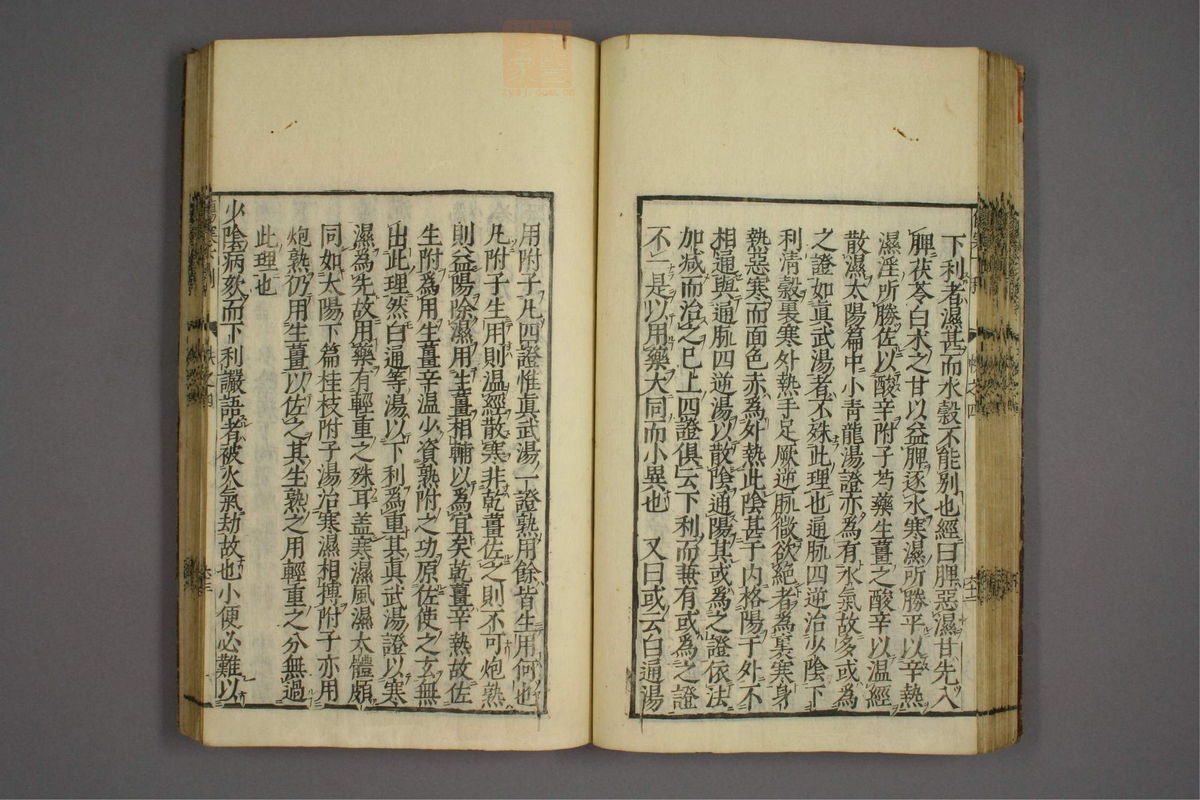 下利者濕甚而水穀不能別也經曰脾惡濕甘先入
脾茯苓白朮之甘以益脾逐水寒濕所勝平以辛熱
濕淫所勝佐以酸辛附子芍藥生薑之酸辛以温經
散濕太陽篇中小青龍湯證亦為有水氣故多或為
之證如真武湯者不殊此理也通脈四逆治少陰下
利清穀裏寒外熱手足厥逆脈微欲絶者為裏寒身
熱惡寒而面色赤為外熱此陰甚于内格陽于外不
相通與通脈四逆湯以散陰通陽其或為之證依法
加减而治之已上四證俱云下利而兼有或為之證
不一是以用藥大同而小異也　又曰或云白通湯
用附子凡四證惟真武湯一證熟用餘皆生用何也
凡附子生用則温經散寒非乾薑佐之則不可炮熟
則益陽除濕用生薑相輔以為宜矣乾薑辛熱故佐
生附爲用生薑辛温少資熟附之功原佐使之玄無
出此理然白通等湯以下利爲重其真武湯證以寒
濕為先故用藥有輕重之殊耳盖寒濕風濕太體頗
同如大陽下篇桂枝附子湯治寒濕相搏附子亦用
炮熟仍用生薑以佐之其生熟之用輕重之分無過
此理也
少陰病欬而下利讝語者被火氣劫故也小便必難以